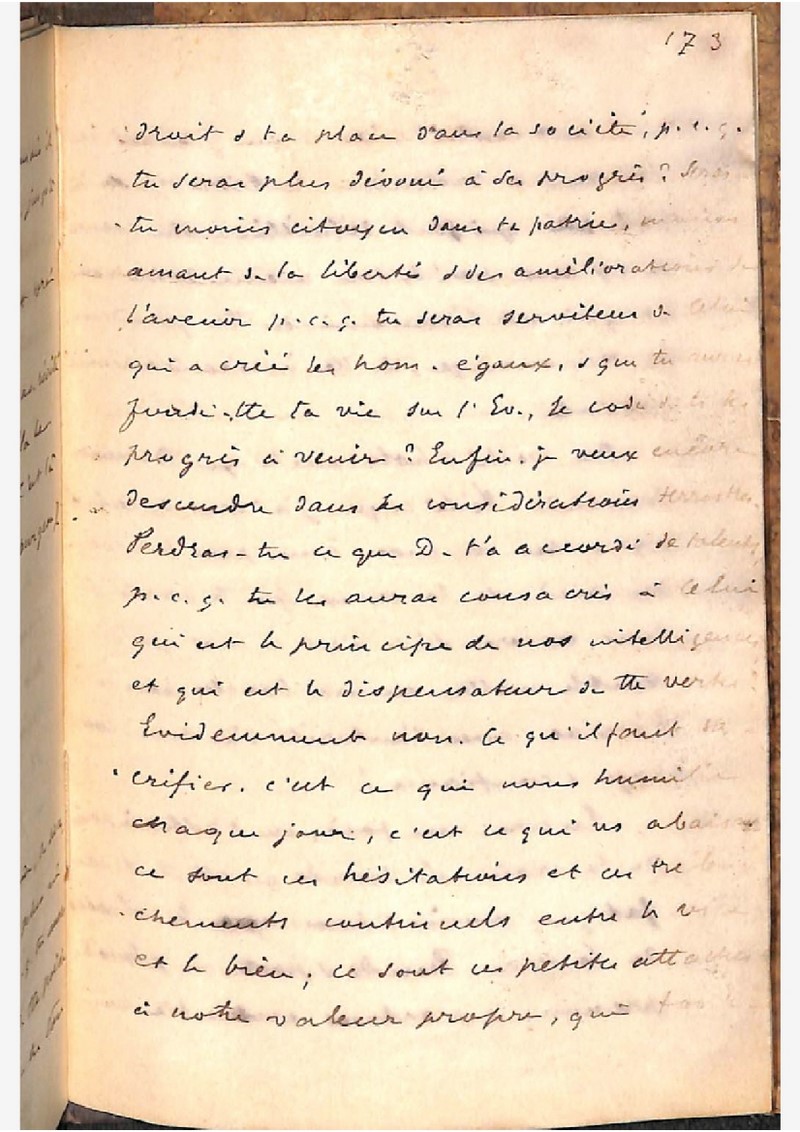 173
droit & ta place dans la société, p. c. q.
tu seras plus dévoué à ses progrès ? Seras
tu moins citoyen dans ta patrie, moins
amant de la liberté & des améliorations de
l'avenir p. c. q. tu seras serviteur de Celui
qui a créé les hom. égaux, & que tu auras
fondé tte ta vie sur l'Ev., le code de ts les
progrès à venir ? Enfin je veux encore
descendre dans les considérations terrestres.
Perdras-tu ce que D. t'a accordé de talents,
p. c. q. tu les auras consacrés à Celui
qui est le principe de nos intelligences
et qui est le dispensateur de tte vertu ?
Evidemment non. Ce qu'il faut sa
crifier. c'est ce qui nous humilie
chaque jour, c'est ce qui ns abaisse
ce sont ces hésitations et ces tré
chements continuels entre le vice
et le bien ; ce sont ces petites attaches
à notre valeur propre, qui